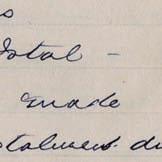 s
total -
made
stalment du